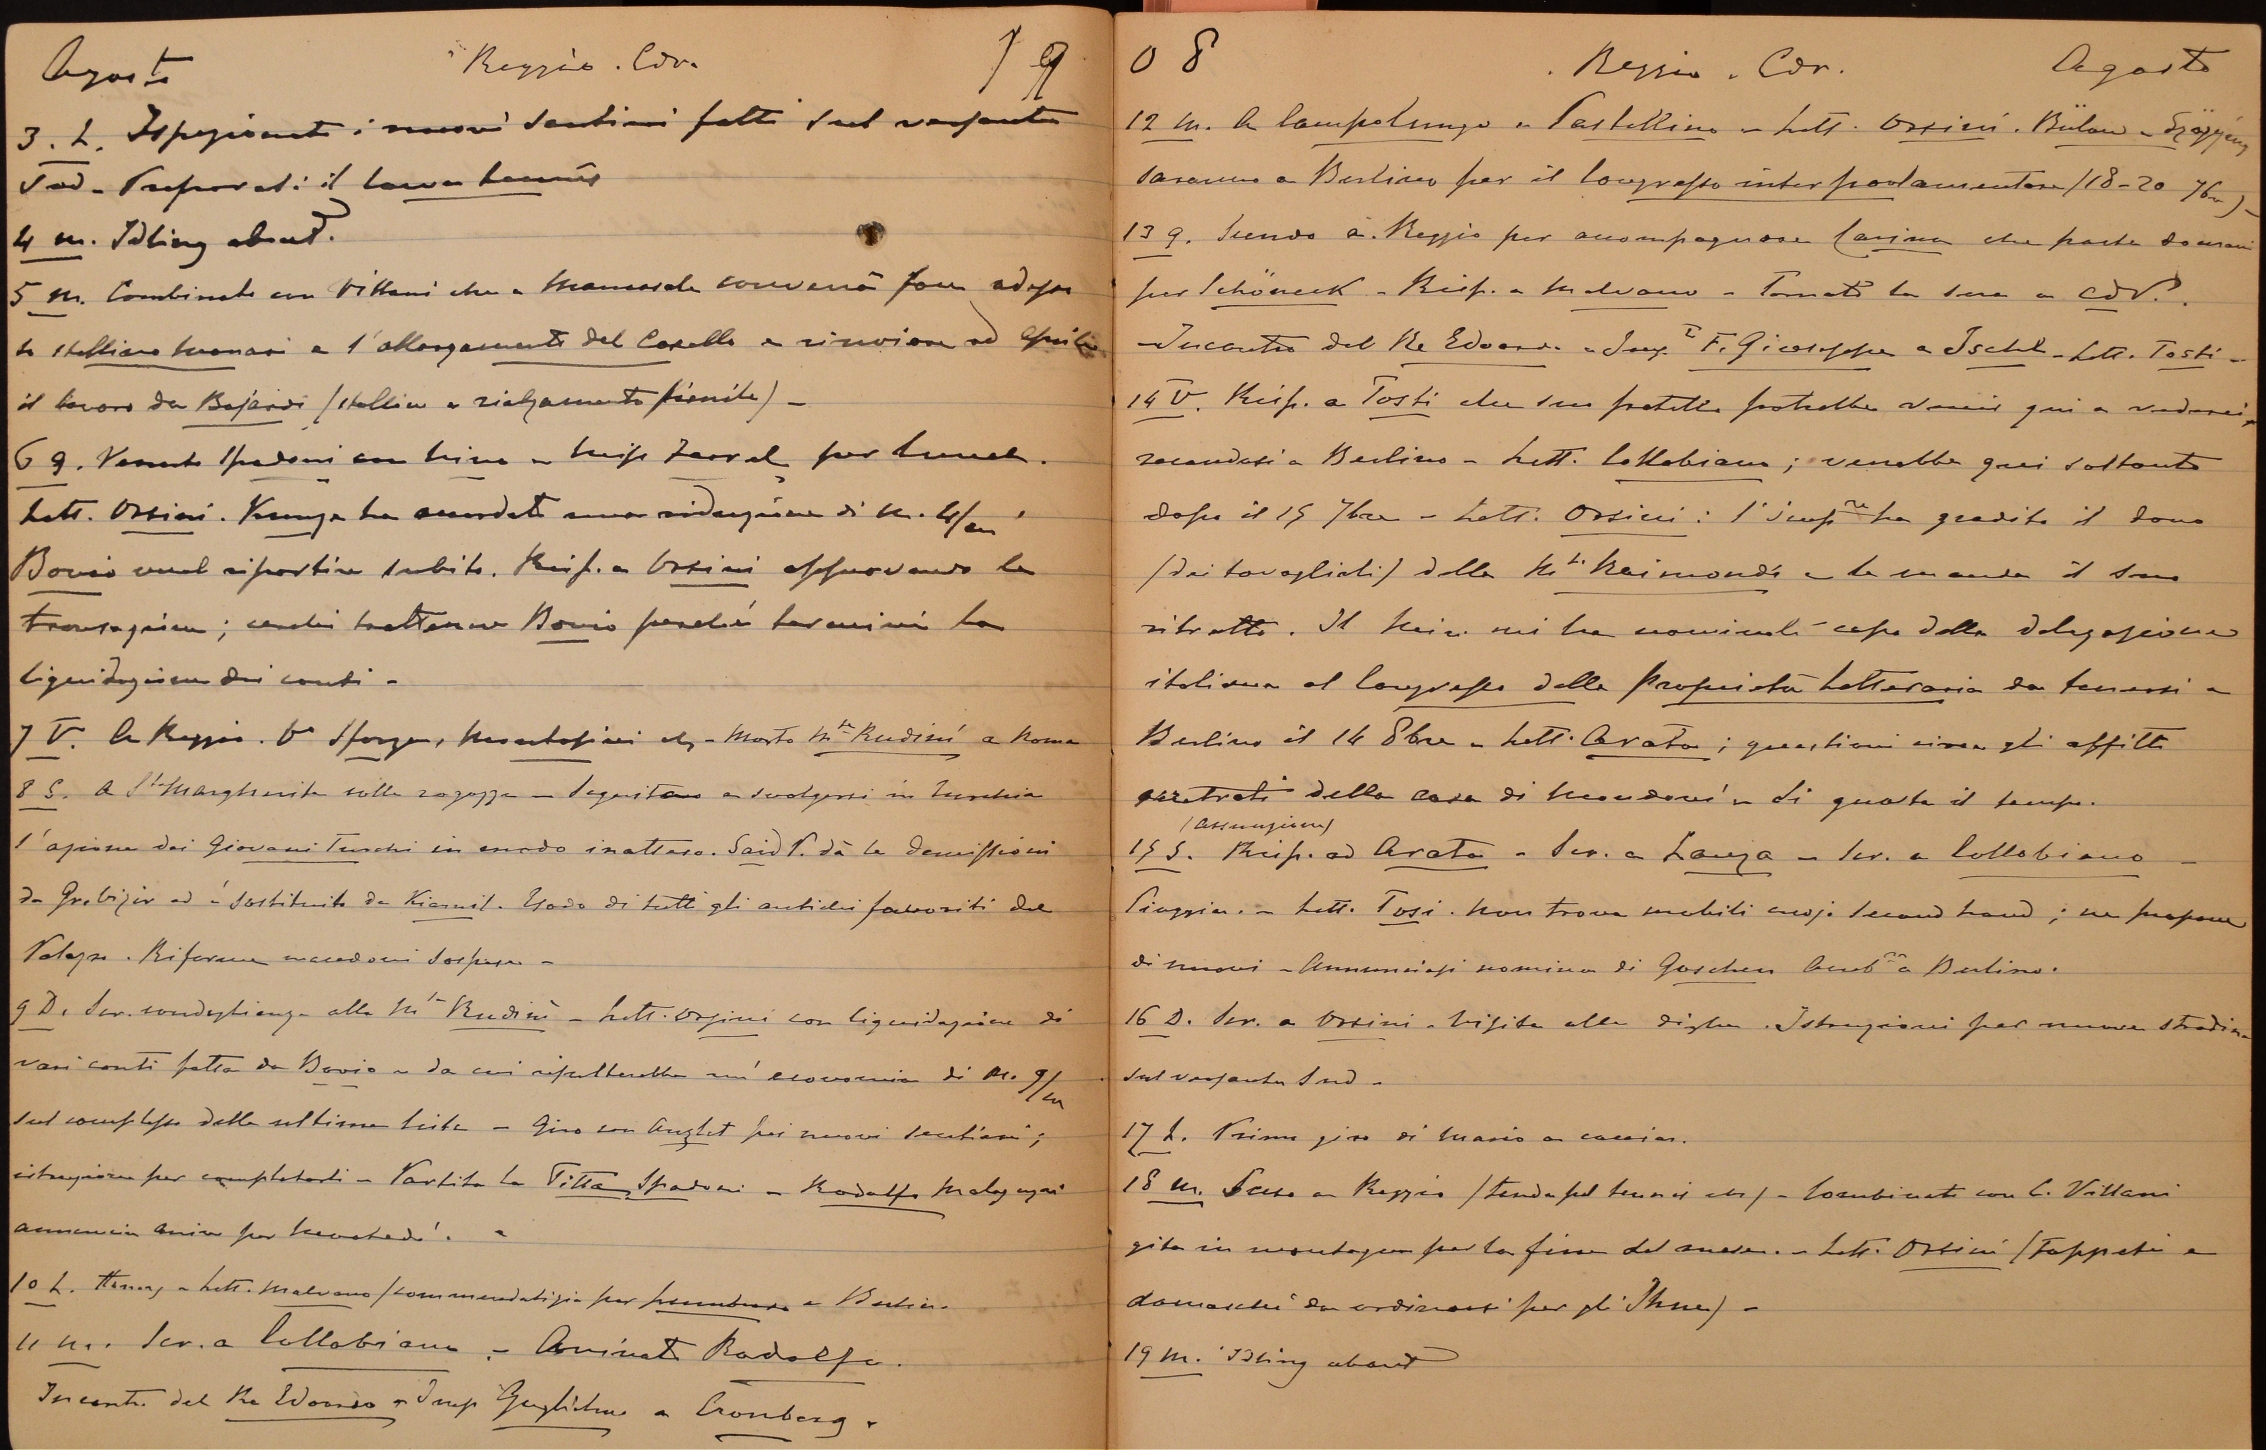 Agosto Reggio. Cdv. 19
3. L. Ispezionati i nuovi sentieri fatti sul versante
Sud - Preparasi il lawn tennis
4 m. Idling about.
5 m. Combinato con Villani che a Mancasale converrà fare adesso
la stallina e l'allargamento del Casello e rinviare ad Aprile
il lavoro da Bajardi (stallina e rialzamento fienile) -
6 g. Venuto Spadoni con Nina e per lunch.
Lett. Orsini. Kunze ha accordato una riduzione di m. 4/m
Bovio vuol ripartire subito. Risp. a Orsini approvando la
transazione; cerchi trattenere Bovio perchè termini la
liquidazione dei conti -
7 V. A Reggio. Vo Sforza, etc - Morto Mse Rudinì a Roma
8 S. A Sta Margherita colle ragazze - Seguitano a svolgersi in Turchia
l'azione dei Giovani Turchi in modo inatteso. Said P. dà le demissioni
da Gr. Vizir ed è sostituito da Kiamil. Esodo di tutti gli antichi favoriti del
Palazzo. Riforme macedoni sospese -
9 D. Scr. condoglianze alla Ma Rudinì - Lett. Orsini con liquidazione di
vari conti fatta da Bovio e da cui risulterebbe un'economia di m. 9/m
sul complesso delle ultime liste - Giro con Anglet pei nuovi sentieri;
istruzioni per completarli - Partita la Titta Spadoni - Rodolfo Malaguzzi
annuncia arrivo per Martedì. -
10 L. - Lett. Malvano (commendatizia per a Berlino.
11 m. Scr. a Collobiano - Arrivato Rodolfo.
Incontro del Re Edoardo e Imp Guglielmo a Cronberg.
08 Reggio. Cdv. Agosto
12 m. A Campolungo e Pastellino - Lett. Orsini. Bülow e Szögyény
saranno a Berlino per il Congresso interparlamentare (18-20 7bre) -
13 g. Scendo a Reggio per accompagnare Carina che parte domani
per Schöneck - Risp. a Malvano - Tornato la sera a CdV.
- Incontro del Re Edoardo e Imp.e F. Giuseppe a Ischl - Lett. Tosti -
14 V. Risp. a Tosti che suo fratello potrebbe venir qui a vederci,
recandosi a Berlino - Lett. Collobiano; verrebbe qui soltanto
dopo il 15 7bre - Lett. Orsini: l'Impce ha gradito il dono
(dei tovaglioli) della Ma Raimondi e le manda il suo
ritratto. Il Min. mi ha nominato capo della delegazione
italiana al Congresso della proprietà letteraria da tenersi a
Berlino il 14 8bre - Lett. Arata; questioni circa gli affitti
arretrati della casa di Mondovì - Si guasta il tempo.
(Assunzione)
15 S. Risp. ad Arata - Scr. a Lanza - Scr. a Collobiano -
Pioggia. - Lett. Tosi. Non trova mobili second hand; ne propone
di nuovi - Annunciasi nomina di Goschen Ambre a Berlino.
16 D. Scr. a Orsini - Visita alle dighe. Istruzioni per nuova stradina
sul versante Sud -
17 L. Primo giro di Mario a caccia.
18 m. Sceso a Reggio (tenda pel tennis etc) - Combinato con C. Villani
gita in montagna per la fine del mese. - Lett. Orsini (tappeti e
damaschi da ordinarsi per gli Ihne) -
19 m. Idling about